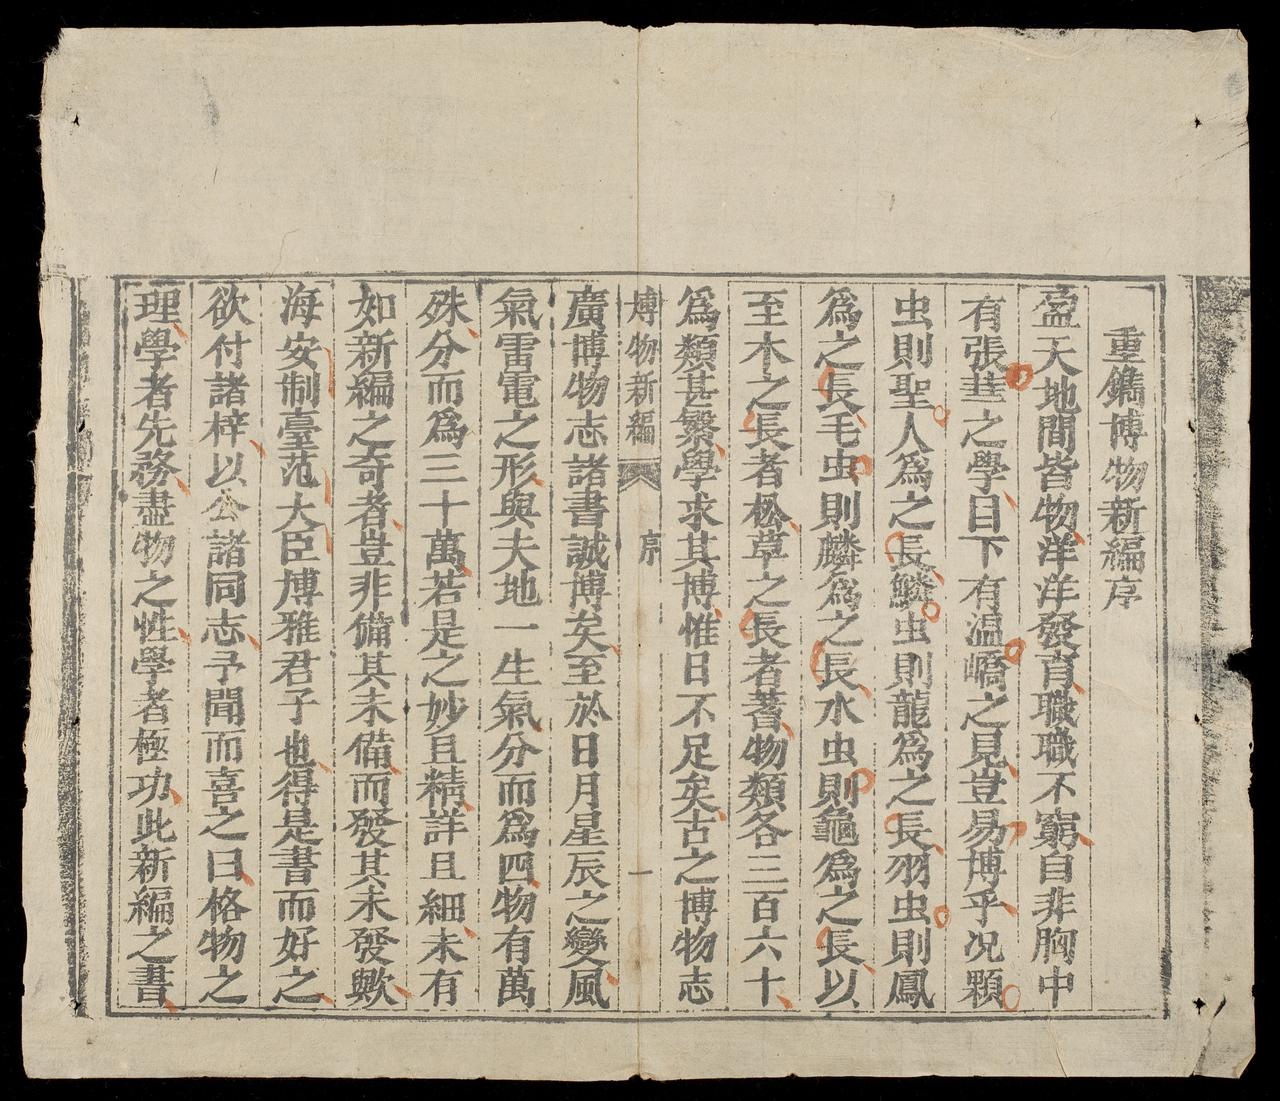 重鐫博物新編序
盈天地間皆物洋洋發育職職不窮自非胸中
有張華之學目下有温嶠之見豈易博乎况顆
虫則聖人爲之長鱗虫則龍爲之長羽虫則鳳
爲之長毛虫則麟爲之長水虫則龜爲之長以
至木之長者松草之長者蓍物類各三百六十
爲類甚繁學求其博惟日不足矣古之博物志
博物新編 序 一
廣博物志諸書誠博矣至於日月星辰之變風
氣雷電之形與夫地一生氣分而爲四物有萬
殊分而爲三十萬若是之妙且精詳且細未有
如新編之奇者豈非備其未備而發其未發歟
海安制臺范大臣博雅君子也得是書而好之
欲付諸梓以公諸同志予聞而喜之曰格物之
理學者先務盡物之性學者極功此新編之書